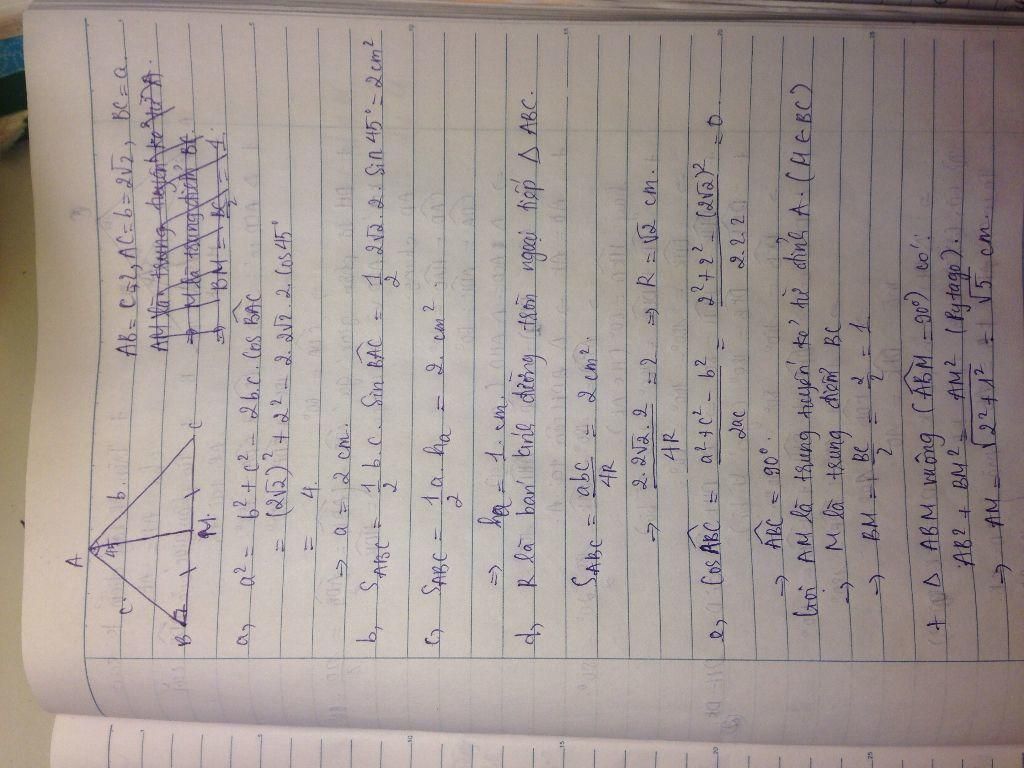 A
c
45
b.
B
M.
C
AB = c = 2, AC = b = 2√2, BC = a
AM là trung tuyến kẻ từ A.
⇒ M là trung điểm BC
⇒ BM = BC/2 = 1.
a, a² = b² + c² - 2b.c. cos BAC
= (2√2)² + 2² - 2. 2√2. 2. cos 45°
= 4.
→ a = 2 cm.
b, S_ABC = 1/2 b. c. sin BAC = 1/2. 2√2. 2. sin 45° = 2 cm²
c, S_ABC = 1/2 a. ha = 2. cm².
⇒ ha = 1. cm.
d, R là bán kính đường tròn ngoại tiếp Δ ABC.
S_ABC = abc/4R = 2 cm².
→ 2. 2√2. 2/4R = 2 ⇒ R = √2 cm.
e, cos ABC = a² + c² - b²/2ac = 2² + 2² - (2√2)²/2. 2. 2. = 0.
→ ABC = 90°.
Gọi AM là trung tuyến kẻ từ đỉnh A. (M ∈ BC)
→ M là trung điểm BC
→ BM = BC/2 = 2/2 = 1.
+ Δ ABM vuông (ABM = 90°) có:
AB² + BM² = AM² (Pytago).
→ AM = √2² + 1² = √5 cm.